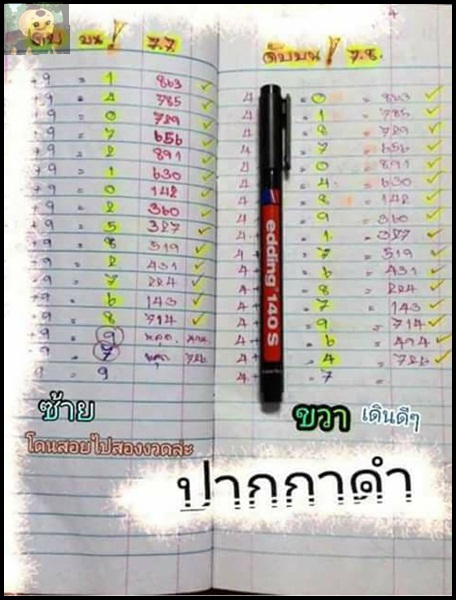 ดับ บน ! 7.7
+9 = 1 863 ✓
+9 = 4 785 ✓
+9 = 0 789 ✓
+9 = 7 656 ✓
+9 = 2 891 ✓
+9 = 1 630 ✓
+9 = 0 142 ✓
+9 = 2 360 ✓
+9 = 5 387 ✓
+9 = 8 519 ✓
+9 = 2 431 ✓
+9 = 7 224 ✓
+9 = 6 143 ✓
+9 = 8 714 ✓
+9 = 9
+9 = 7
+9 = 9
ซ้าย
โดนสอยไปสองงวดล่ะ
ดับบน ! 7.8.
4. = 0 = 863 ✓
4 = 1 = 785 ✓
4 = 8 = 789 ✓
4 = 7 = 656 ✓
4 = 0 = 891 ✓
4 = 4 = 630 ✓
4 = 8 = 142 ✓
4 = 9 = 360 ✓
4 = 1 = 387 ✓
4 + = 7 = 519 ✓
4 + = 6 = 431 ✓
4 + = 8 = 224 ✓
4 + = 7 = 143 ✓
4 + = 9 = 714 ✓
4 + = 6 = 494 ✓
4 + = 4 = 726 ✓
4 + = 7 =
edding 140 S
ขวา เดินดีๆ
ปากกาดำ